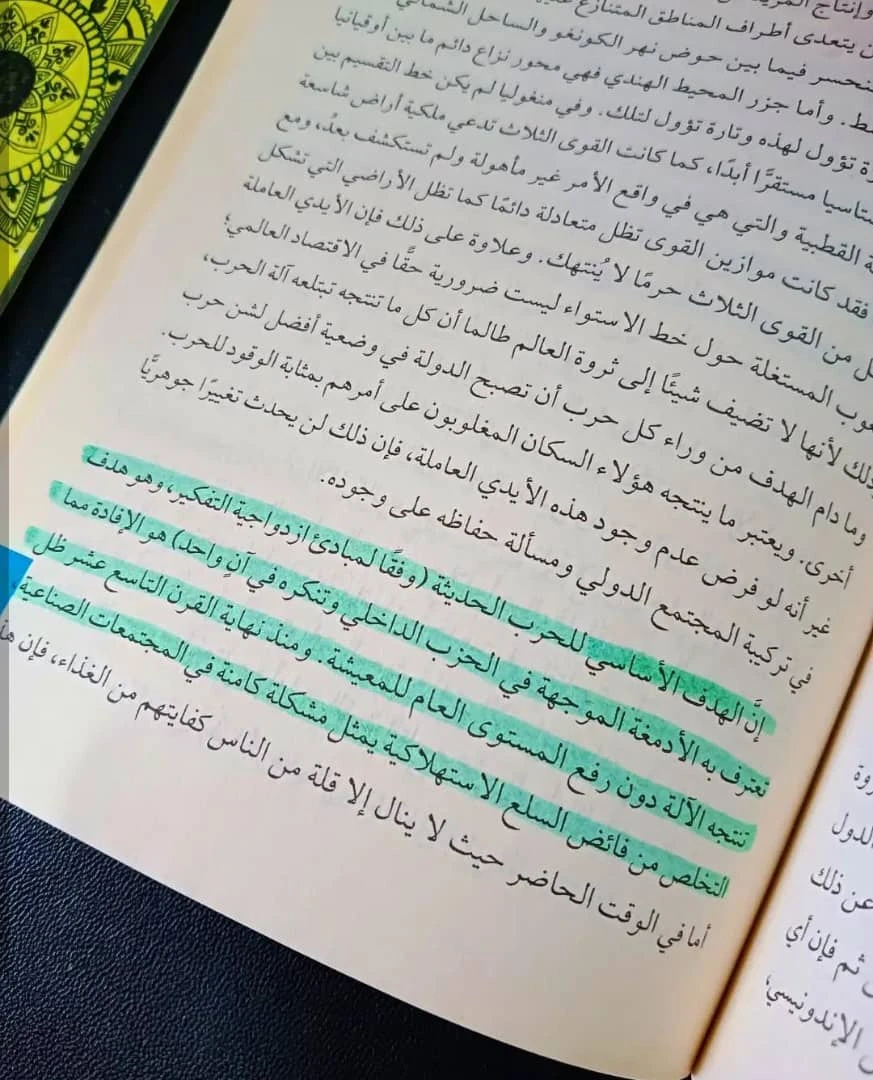 وإنتاج المزيد
يتعدى أطراف المناطق المتنازع عليها
تنحسر فيما بين حوض نهر الكونغو والساحل الشمالي
وأما جزر المحيط الهندي فهي محور نزاع دائم ما بين أوقيانيا
تؤول لهذه وتارة تؤول لتلك. وفي منغوليا لم يكن خط التقسيم بين
مستقرًّا أبدًا، كما كانت القوى الثلاث تدعي ملكية أراضٍ شاسعة
القطبية والتي هي في واقع الأمر غير مأهولة ولم تستكشف بعدُ، ومع
فقد كانت موازين القوى تظل متعادلة دائمًا كما تظل الأراضي التي تشكل
من القوى الثلاث حرمًا لا يُنتهك. وعلاوة على ذلك فإن الأيدي العاملة
المستغلة حول خط الاستواء ليست ضرورية حقًّا في الاقتصاد العالمي؛
لأنها لا تضيف شيئًا إلى ثروة العالم طالما أن كل ما تنتجه تبتلعه آلة الحرب،
وما دام الهدف من وراء كل حرب أن تصبح الدولة في وضعية أفضل لشن حرب
أخرى. ويعتبر ما ينتجه هؤلاء السكان المغلوبون على أمرهم بمثابة الوقود للحرب.
غير أنه لو فرض عدم وجود هذه الأيدي العاملة، فإن ذلك لن يحدث تغييرًا جوهريًّا
في تركيبة المجتمع الدولي ومسألة حفاظه على وجوده.
إنَّ الهدف الأساسي للحرب الحديثة (وفقًا لمبادئ ازدواجية التفكير، وهو هدف
تعترف به الأدمغة الموجهة في الحزب الداخلي وتنكره في آنٍ واحد) هو الإفادة مما
تنتجه الآلة دون رفع المستوى العام للمعيشة. ومنذ نهاية القرن التاسع عشر ظل
التخلص من فائض السلع الاستهلاكية يمثل مشكلة كامنة في المجتمعات الصناعية،
أما في الوقت الحاضر حيث لا ينال إلا قلة من الناس كفايتهم من الغذاء، فإن
الدول
عن ذلك
ثم فإن أي
الإندونيسي،